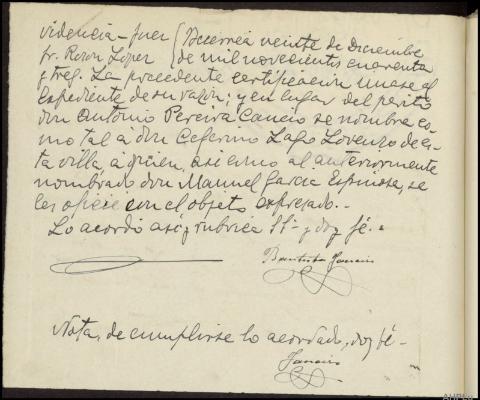 videncia - Juez
Sr. Rozon López
Becerreá veinte de Diciembre
de mil novecientos cuarenta
y tres. La precedente certificación unase al
expediente de su razon; y en lugar del perito
don Antonio Pereira Cancio se nombra co-
mo tal á don Ceferino Lago Lorenzo de es-
ta villa, á quien, así como al anteriormente
nombrado don Manuel Garcia Espinosa, se
les oficie con el objeto expresado.-
Lo acordó así y rubrica SSª y doy fé.-
Bautista
Nota, de cumplirse lo acordado, doy fé-